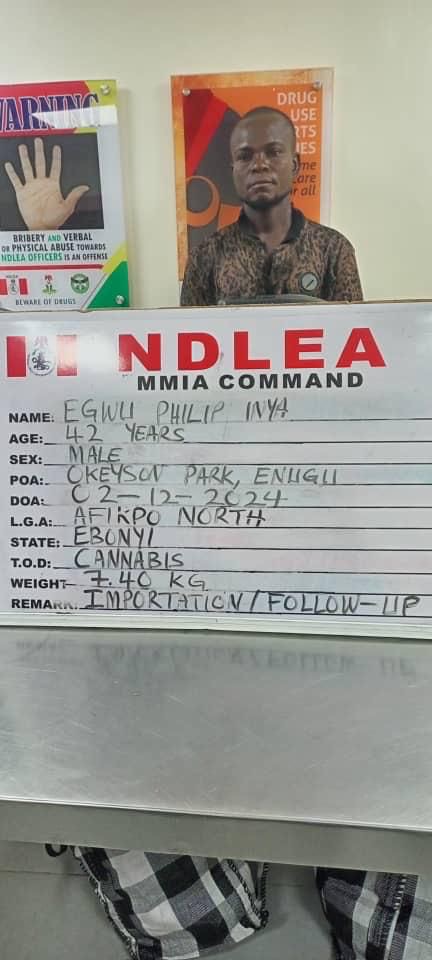 WARNING
BRIBERY AND VERBAL
OR PHYSICAL ABUSE TOWARDS
NDLEA OFFICERS IS AN OFFENSE
BEWARE OF DRUGS
DRUG
USE
NDLEA
MMIA COMMAND
NAME: EGWU PHILIP INYA
AGE: 42 YEARS
SEX: MALE
POA: OKEYSON PARK, ENUGU
DOA: 02-12-2024
L.G.A: AFIKPO NORTH
STATE: EBONYI
T.O.D: CANNABIS
WEIGHT 7.40 KG
REMARK: IMPORTATION/FOLLOW-UP